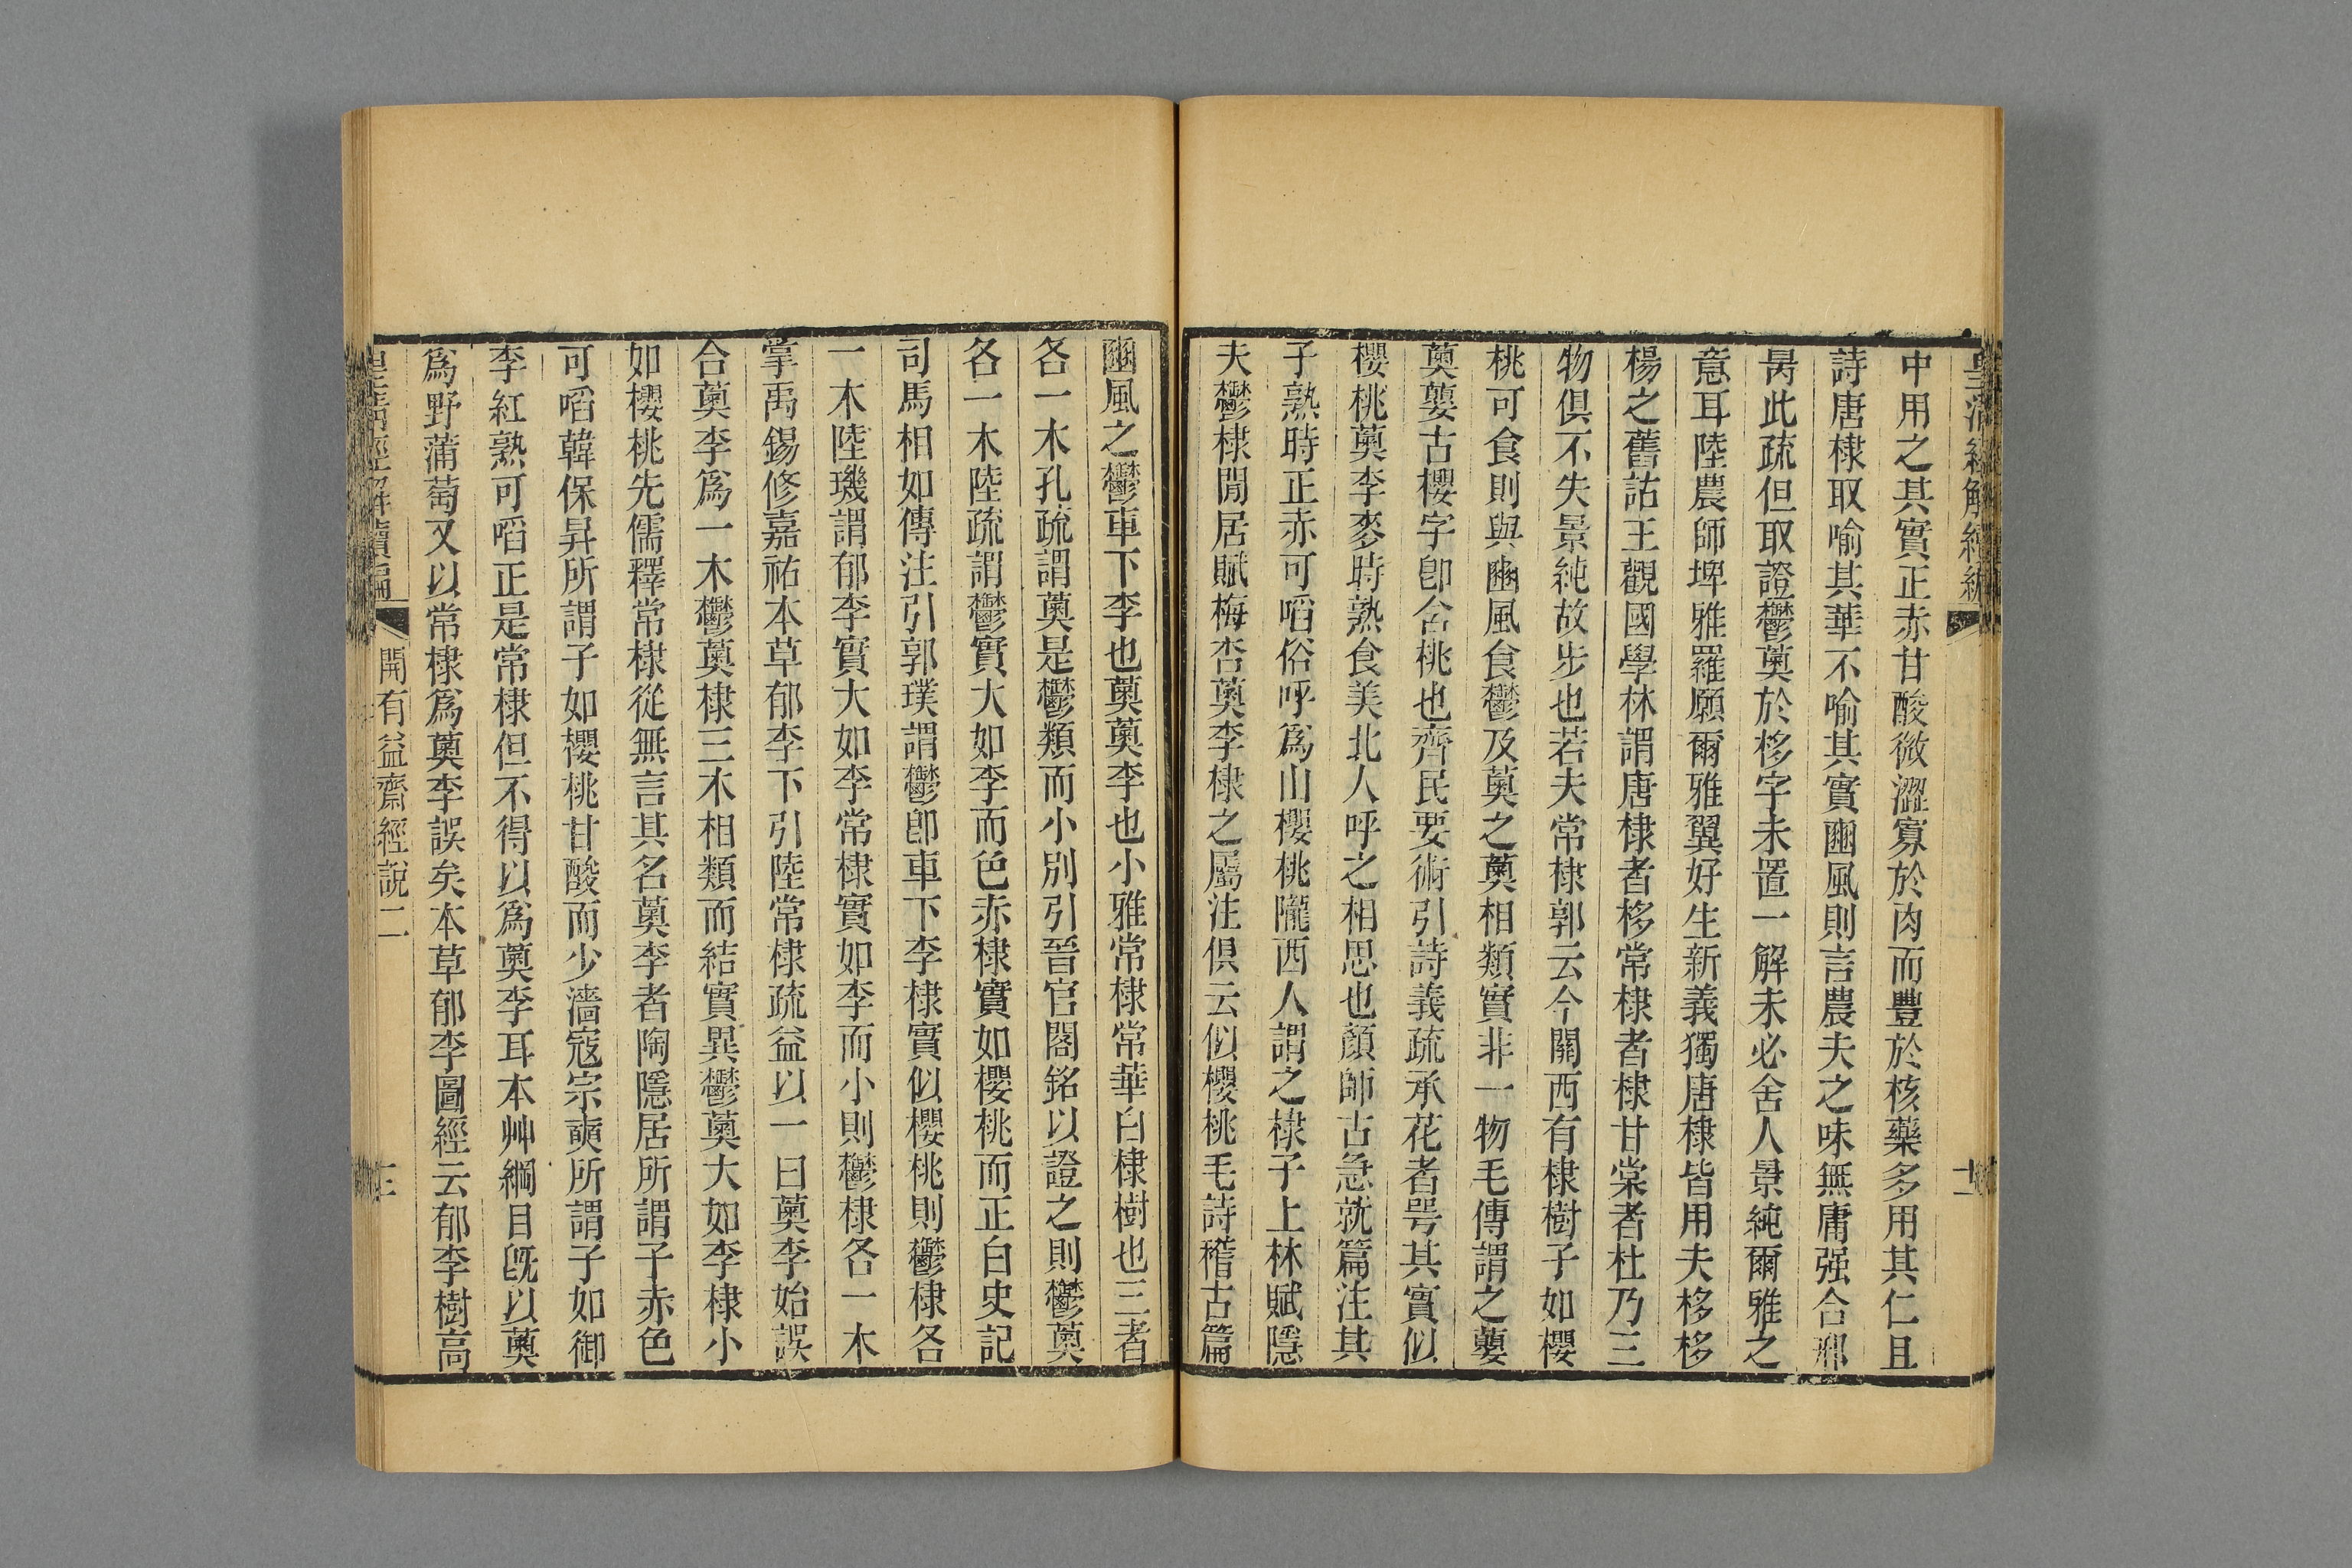 中用之其實正赤甘酸微澀寡於肉而豐於核藥多用其仁且
詩唐棣取喻其華不喻其實豳風則言農夫之味無庸强合邢
昺此疏但取證鬱薁於栘字未置一解未必舍人景純爾雅之
意耳陸農師埤雅羅願爾雅翼好生新義獨唐棣皆用夫栘栘
楊之舊詁王觀國學林謂唐棣者栘常棣者棣甘棠者杜乃三
物俱不失景純故步也若夫常棣郭云今關西有棣樹子如櫻
桃可食則與豳風食鬱及薁之薁相類實非一物毛傳謂之蘡
薁蘡古櫻字卽含桃也齊民要術引詩義疏承花者咢其實似
櫻桃薁李麥時熟食美北人呼之相思也顏師古急就篇注其
子熟時正赤可啗俗呼爲山櫻桃隴西人謂之棣子上林賦隱
夫鬱棣閒居賦梅杏薁李棣之屬注俱云似櫻桃毛詩稽古篇
豳風之鬱車下李也薁薁李也小雅常棣常華白棣樹也三者
各一木孔疏謂薁是鬱類而小別引晉宫閣銘以證之則鬱薁
各一木陸疏謂鬱實大如李而色赤棣實如櫻桃而正白史記
司馬相如傳注引郭璞謂鬱卽車下李棣實似櫻桃則鬱棣各
一木陸璣謂郁李實大如李常棣實如李而小則鬱棣各一木
掌禹錫修嘉祐本草郁李下引陸常棣疏益以一曰薁李始誤
合薁李爲一木鬱薁棣三木相類而結實異鬱薁大如李棣小
如櫻桃先儒釋常棣從無言其名薁李者陶隱居所謂子赤色
可啗韓保昇所謂子如櫻桃甘酸而少濇寇宗奭所謂子如御
李紅熟可啗正是常棣但不得以爲薁李耳本艸綱目旣以薁
爲野蒲萄又以常棣爲薁李誤矣本草郁李圖經云郁李樹高
皇淸經解續編
開有益齋經說二